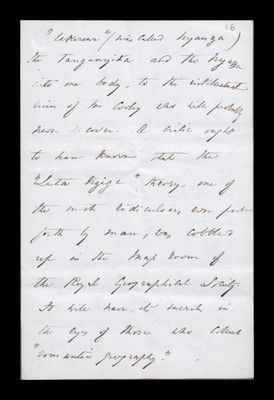 16
"Ukerewe" (miscalled Nyanza)
the Tanganyika and the Nyassa
into one body, to the intellectual
of Mr Cooley who will probably
never recover. A critic ought
to have known that the
"Luta Nzige" theory, one of
the most ridiculous ever put
forth by man, was cobbled
up in the Map room of
the Royal Geographical Society
It will have its merit in
the eyes of those who
"romantic geography."